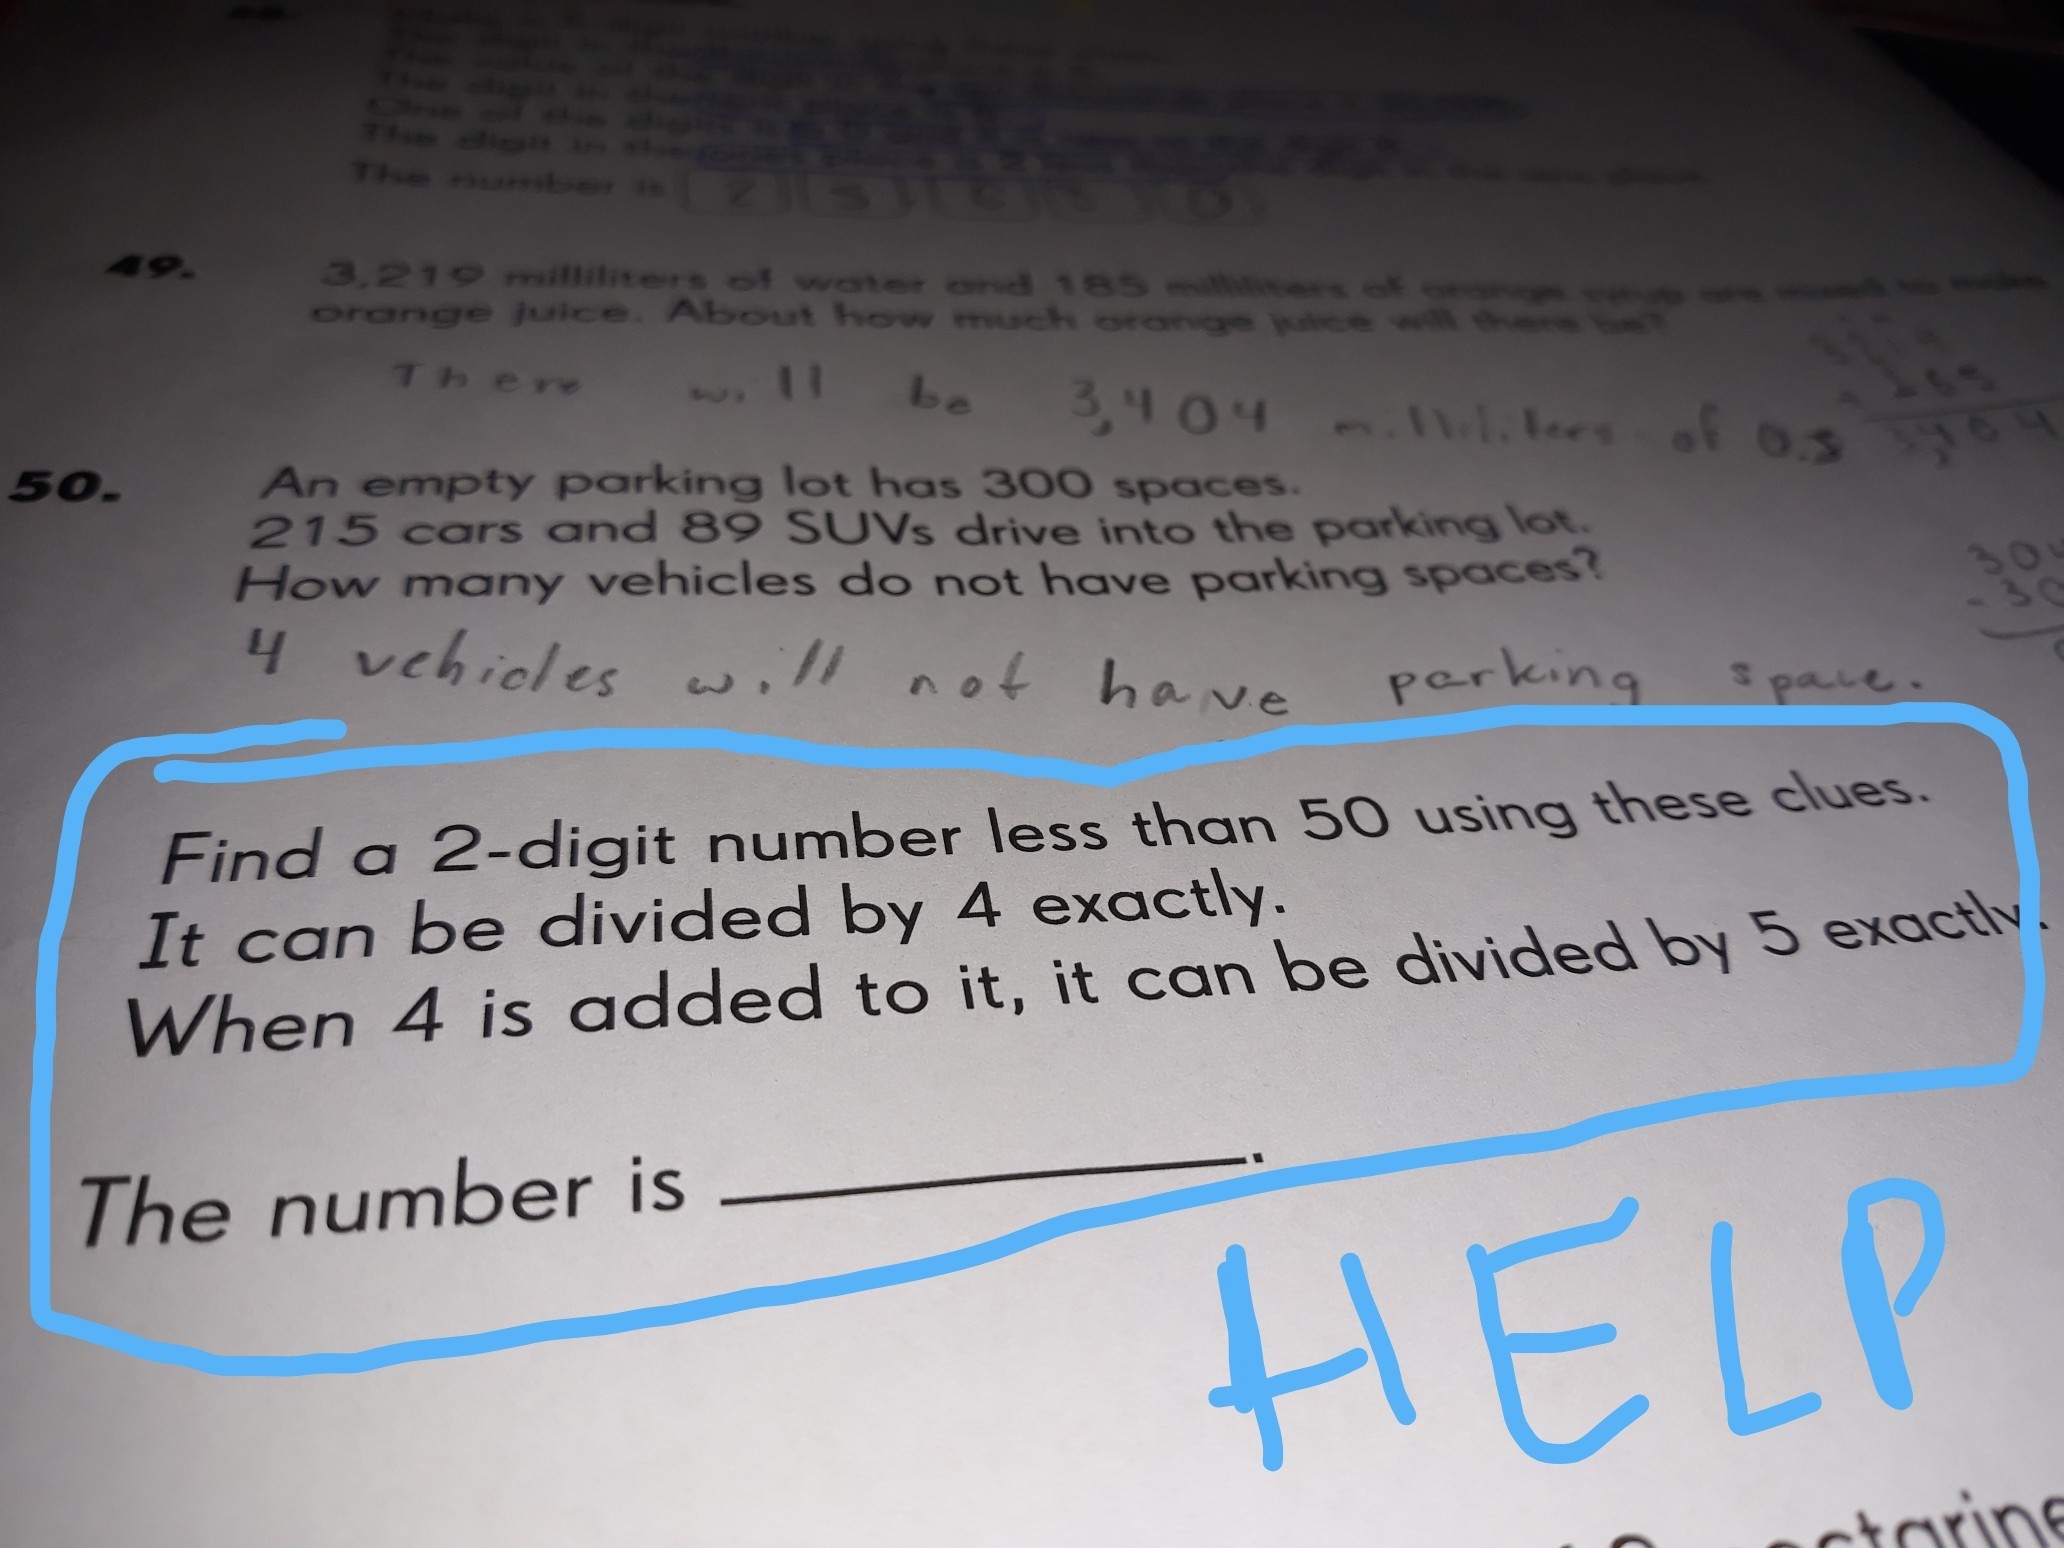 The digit in the
One of the digits
The digit in the ones place is 2
The number is 2 5 6 0
49.
3,219 milliliters of water and 185 milliliters of orange syrup are mixed to make
orange juice. About how much orange juice will there be?
There will be 3,404 milliliters of o.j
3,404
50.
An empty parking lot has 300 spaces.
215 cars and 89 SUVs drive into the parking lot.
How many vehicles do not have parking spaces?
4 vehicles will not have parking space.
Find a 2-digit number less than 50 using these clues.
It can be divided by 4 exactly.
When 4 is added to it, it can be divided by 5 exactly.
The number is ________.
HELP